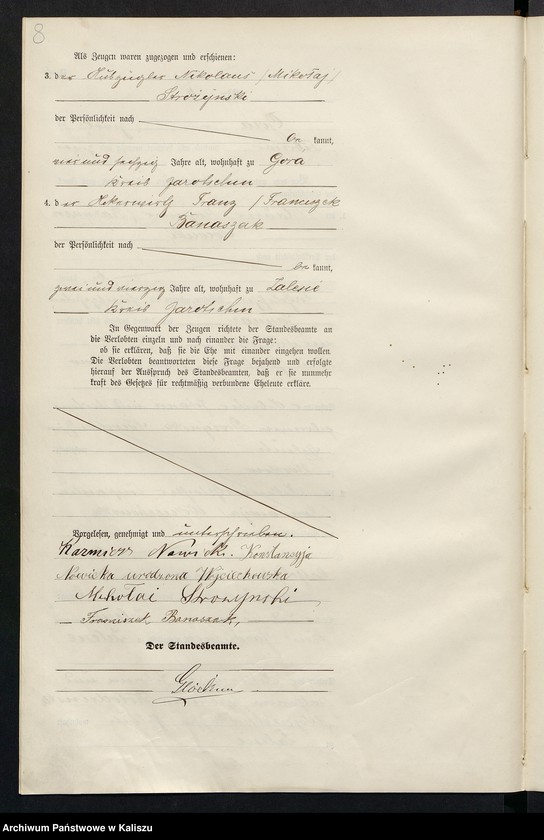 8
Als Zeugen waren zugezogen und erschienen:
3. der Nikolaus (Mikołaj)
Strożynski
der Persönlichkeit nach
be kannt,
und sechzig Jahre alt, wohnhaft zu Gora
Kreis Jarotschin
4. der Ackerwirth Franz (Franciszek
Banaszak
der Persönlichkeit nach
be kannt,
zwei und vierzig Jahre alt, wohnhaft zu Zalesie
Kreis Jarotschin
In Gegenwart der Zeugen richtete der Standesbeamte an
die Verlobten einzeln und nach einander die Frage:
ob sie erklären, daß sie die Ehe mit einander eingehen wollen.
Die Verlobten beantworteten diese Frage bejahend und erfolgte
hierauf der Ausspruch des Standesbeamten, daß er sie nunmehr
kraft des Gesetzes für rechtmäßig verbundene Eheleute erkläre.
Vorgelesen, genehmigt und unterschrieben.
Kazmierz Nowicki. Konstancyja
Nowicka urodzona Wojciechowska
Mikołai Strozynski
Franciszek Banaszak,
Der Standesbeamte.
Archiwum Państwowe w Kaliszu